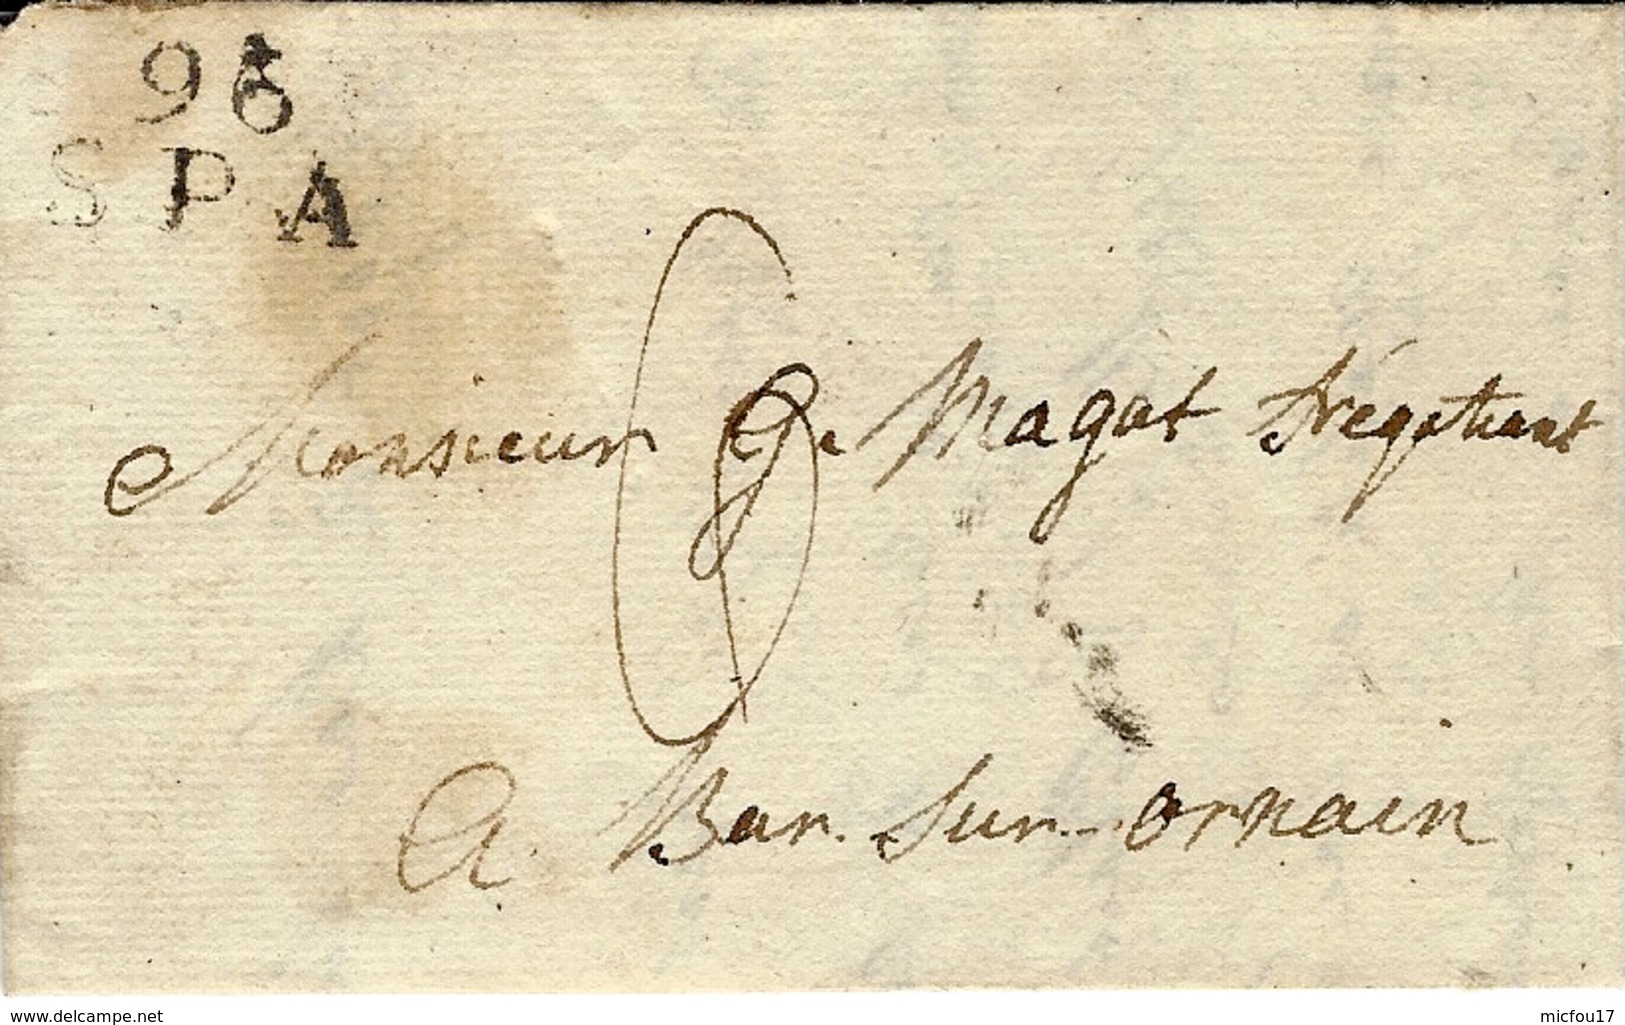 96
SPA
Monsieur G. Magot Négotiant
6
A Bar-sur-ornain
delcampe.net
micfou17